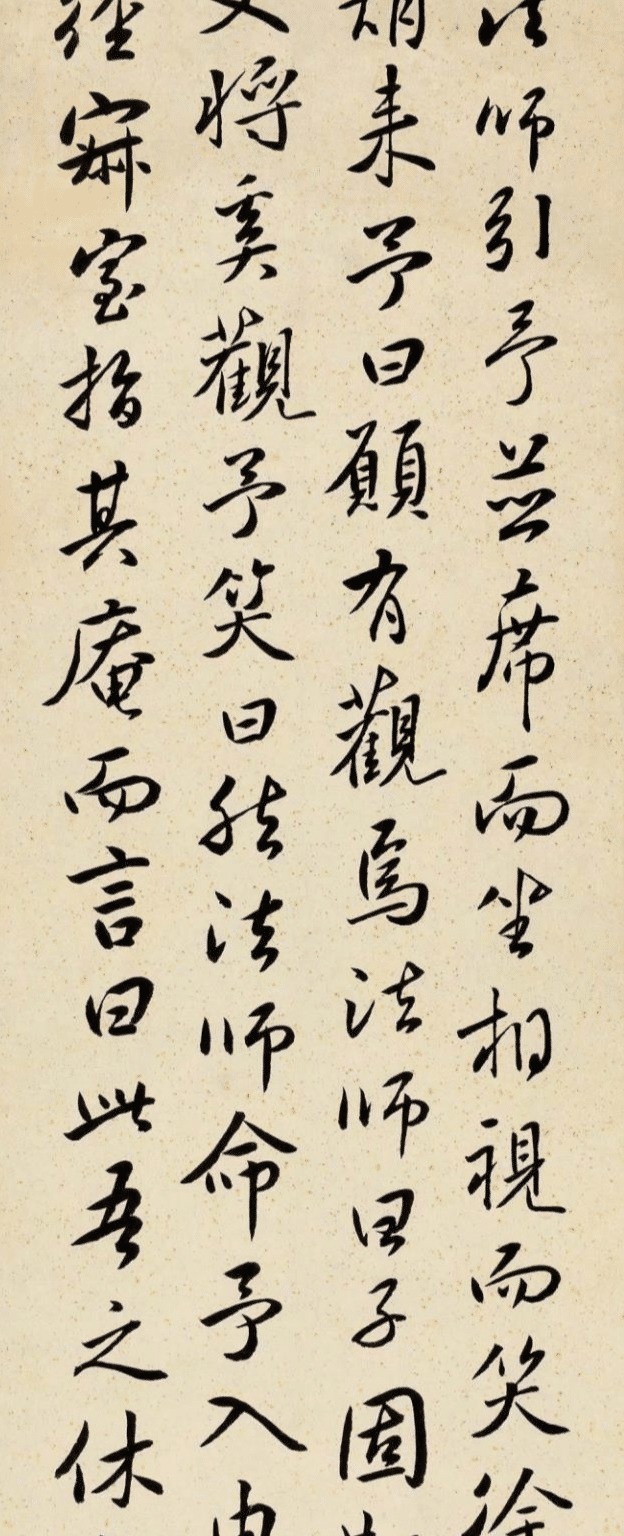 法師引予並席而坐相視而笑徐
胡来予曰願有觀焉法師曰子固
又將奚觀予笑曰然法師命予入由
徑寂室指其庵而言曰此吾之休